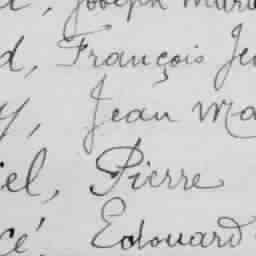 Joseph Marie
d, François Je
y, Jean Ma
iel, Pierre
cé, Edouard